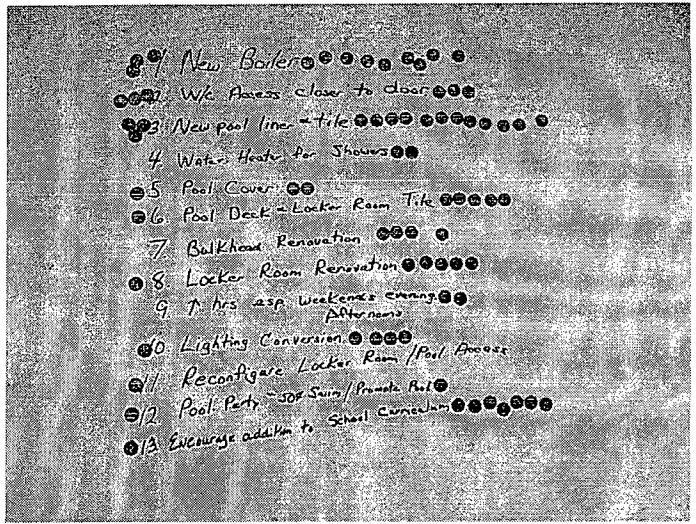 1. New Boiler
2. W/c Access closer to door
3. New pool liner + tile
4 Water Heater for Showers
5 Pool Cover
6. Pool Deck + Locker Room Tile
7 Bulkhead Renovation
8. Locker Room Renovation
9 ↑ hrs esp. weekends evening
Afternoons
10. Lighting Conversion
11. Reconfigure Locker Room / Pool Access
12. Pool Party - 50¢ Swim / Promote Pool
13 Encourage addition to School Curriculum